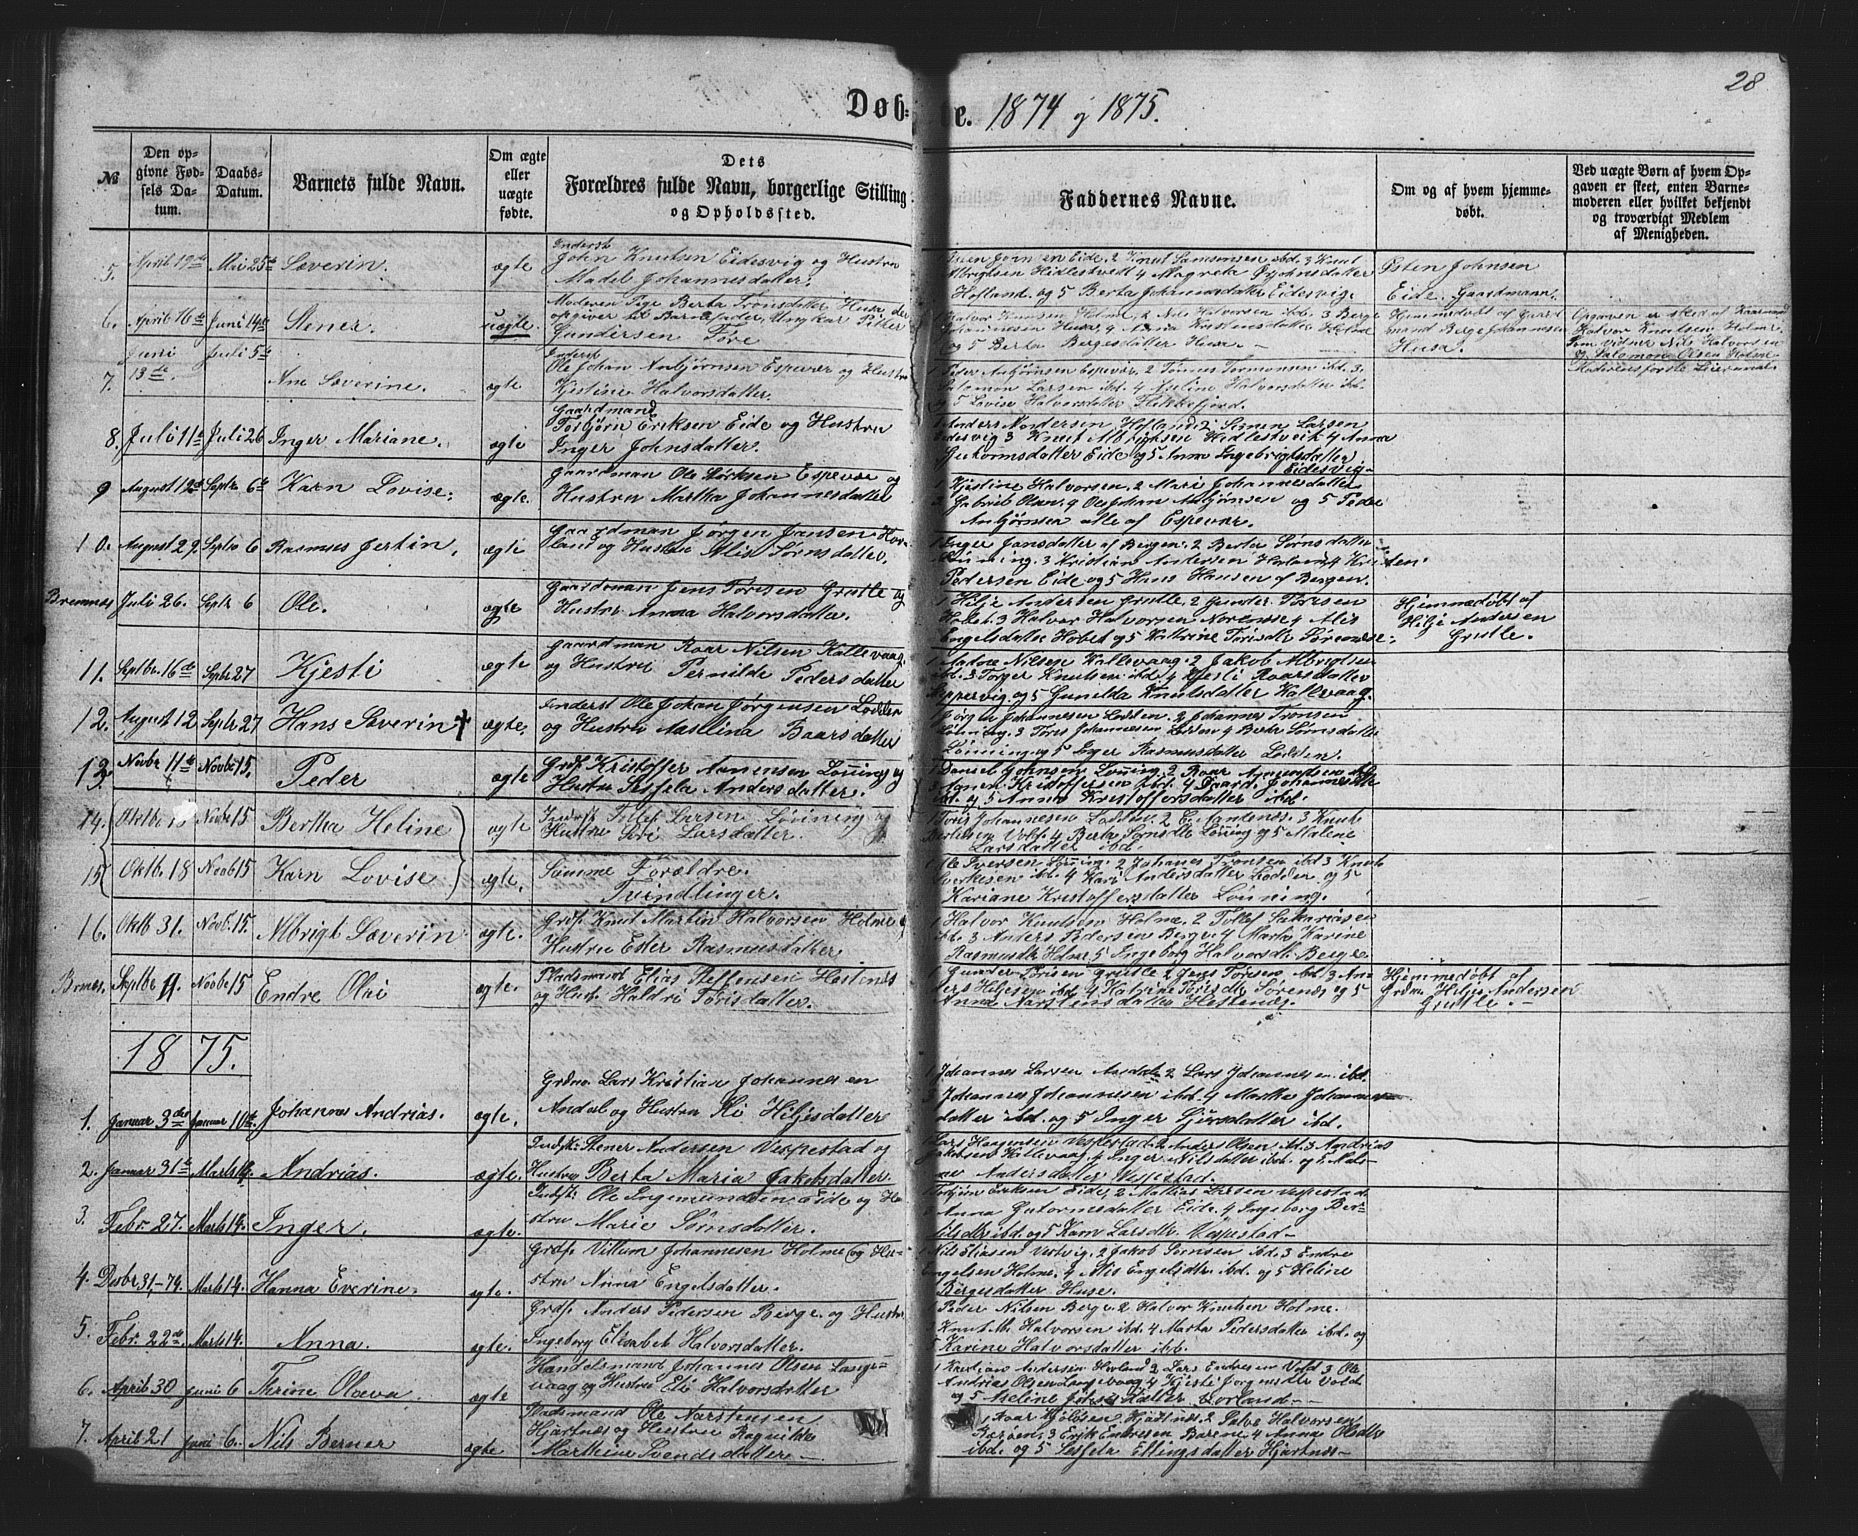 28
Døb- te. 1874 og 1875.
№
Den opgivne Fødsels Datum.
Daabs-Datum.
Barnets fulde Navn.
Om ægte eller uægte fødte.
Dets
Forældres fulde Navn, borgerlige Stilling
og Opholdssted.
Faddernes Navne.
Om og af hvem hjemmedøbt.
Ved uægte Børn af hvem Opgaven er skeet, enten Barnemoderen eller hvilket bekjendt og troværdigt Medlem af Menigheden.
5. April 19de Mai 25de Severin. ægte
Inderst
John Knutsen Eidesvig og Hustru
Madel Johannesdatter.
Albrigtsen Hidlestveit 4 Magrete Østensdatter
Hofland og 5 Berta Johannesdatter Eidesvig.
Østen Johnsen
Eide. Gaardmann.
6. April 16de Juni 14de Stener. uægte.
Moderen Pige Berta Tronsdatter Husa der
opgiver til Barnefader, Ungkar Peller
Gundersen Tore
og 5 Berta Bergesdatter Husa.
Hjemmedøbt af Gaardmand Berge Johannesen
Husa.
Opgaven er sked af Kaarmand
Halvor Knutsen Holme
Som vidner Nils Halvorsen
og Salomon Olsen Holme
Moderens første Leiermaal
7. Juni 13de Juli 5te Ane Severine. ægte
Inderst
Ole Johan Anbjørnsen Espevær og Hustru
Kjistine Halvorsdatter.
1 Peder Anbjørnsen Espevær, 2 Tønnes Tormonsen ibd. 3
Salomon Larsen ibd. 4 Aseline Halvorsdatter ibd.
og 5 Lovise Halvorsdatter Flekkefjord.
8. Juli 11te Juli 26 Inger Mariane. ægte
Gaardmand
Torbjørn Eriksen Eide og Hustru
Inger Johnsdatter.
1 Anders Andersen Hofland, 2 Simon Larsen
Eidesvig 3 Knut Albrigtsen Hidlestveit 4 Anna
Gutormsdatter Eide og 5 Anna Ingebrigtsdatter
Eidesvig
9 August 12te Septr 6te Karn Lovise. ægte.
Gaardman Ole Larksen Espevær og
Hustru Martha Johannesdatter
1 Kjestine Halvorsen, 2 Mari Johannesdatter
3 Gabriel Olsen, 4 Ole Johan Anbjørnsen og 5 Peder
Anbjørnsen alle af Espevær.
10. August 29. Septbr 6 Rasmus Jertin. ægte
Gaardman Jørgen Jansen Hovland
og Hustru Alis Sørnsdatter.
1 Inger Jansdatter af Bergen, 2 Berta Sørnsdatter
Lønning. 3 Kristian Andersen Hovland 4 Kristen
Pedersen Eide og 5 Hans Hansen af Bergen.
Bremnæs Juli 26. Septr 6 Ole. ægte
Gaardman Jens Torisen Grutle og
Hustru Anna Halvorsdatter.
1 Hilje Andersen Grutle, 2 Gunder Torisen
Hobet. 3 Halvor Halvorsen Norenæs 4 Alis
Engelsdatter Hobet og 5 Katrine Torisdtr Sørenæs.
Hjemmedøbt af
Hilje Andersen
Grutle.
11. Septbr. 16de Septr 27 Kjesti ægte
Gaardman Roar Nilsen Kallevaag
og Hustru Pernilde Pedersdatter
1 Nilsen Kallevaag. 2 Jakob Albrigtsen
ibd. 3 Torger Knutsen ibd. 4 Kjesti Roarsdatter
og 5 Gunilda Knutsdatter Kallevaag.
12. August 12 Septr 27 Hans Severin † ægte.
Inderst Ole Johan Jørgensen Lodden
og Hustru Aasllina Baarsdatter
1 Jørgen Johannesen Lodden. 2 Johannes Tronsen
Lønning, 3 Tøris Johannesen Lodden 4 Berta Sørnsdatter
Lønning og 5 Inger Rasmusdatter Lodden.
13. Novbr 11te Novbr 15. Peder ægte
Grdf. Kristoffer Aanensen Lønning og
Hustru Sessela Andersdatter.
1 Daniel Johnsen Lønning, 2 Roar Aamundsen
3 Aanen Kristoffersen ibd. 4 Johannesdtr
ibd. og 5 Anna Kristoffersdatter ibd.
14. Oktbr 18 Novbr 15 Bertha Heline ægte
Inderst Tollef Larsen Lønning og
Hustru Siri Larsdatter.
1 Tøris Johannesen Lodden. 2 3 Knut
4 Berta Sørnsdtr Lønning og 5 Malene
Larsdatter ibd.
15 Oktb. 18 Novb 15 Karn Lovise ægte.
Samme Forældre.
Tvindlinger.
Ole Iversen Lønning. 2 Johanes Tronsen ibd 3 Knut
ibd. 4 Kari Andersdatter Lodden og 5
Kariane Kristoffersdatter Lønning.
16. Oktb 31. Novb. 15. Albrigt Severin ægte.
Grdf. Knut Martin Halvorsen Holme og
Hustru Ester Rasmusdatter.
1 Halvor Knutsen Holme. 2 Tollef Sakariasen
ibd. 3 Anders Pedersen Berge 4 Marta Karine
Rasmusdtr Holme 5 Ingeborg Halvorsdtr Berge.
Bræmnes. Septbr 11. Novbr 15 Endre Olai ægte.
Pladsmand Elias Steffensen Hestenes
og Hust. Haldri Torisdatter.
1 Gunder Torisen Grutle 2 Jens Torisen ibd. 3 Anders
Hiljesen ibd. 4 Katrine Torisdtr Sørenæs og 5
Anna Aarstensdatter Hestenæs.
Hjemmedøbt af
Grdm. Hilje Andersen
Grutle.
1875.
1. Januar 3die Januar 10de Johannes Andrias. ægte.
Grdm. Lars Kristian Johannesen
Andal og Hustru Ri Hiljesdatter
1 Johannes Larsen Andal 2 Lars Johannesen ibd.
3 Johannes Johannesen ibd. 4 Martha Johannesdatter
ibd. og 5 Inger Sjursdatter ibd.
2. Januar 31te Marts 14. Andrias. ægte.
Indst. Stener Andersen Vespestad og
Hustru Berta Maria Jakobsdatter.
1 Lars Haagensen Vespestad. 2 Anders Olsen ibd. 3 Andrias
Jakobsen Kallevaag. 4 Inger Nilsdatter ibd. og 5
Andersdatter Vespestad.
3. Febr. 27. Marts 14. Inger. ægte.
Indst. Ole Ingemundsen Eide og Hustru
Marie Simonsdatter.
Torbjørn Eriksen Eide, 2 Mathias Larsen Vespestad
3 Anna Gutormsdatter Eide. 4 Ingeborg Bertilsdtr
ibd. og 5 Karn Larsdtr Vespestad
4. Desbr 31,-74. Marts 14. Hanna Everine. ægte.
Grdf. Villum Johannesen Holme og Hustru
Anna Engelsdatter.
1 Nils Eliasen Vestvig. 2 Jakob Simonsen ibd. 3 Endre
Engelsen Holme. 4 Alis Engelsdtr. ibd. og 5 Heline
Børgesdatter Huse.
5. Febr. 22de Marts 14. Anna. ægte.
Grdf. Anders Pedersen Berge og Hustru
Ingeborg Elisabet Halvorsdatter.
1 Peder Nilsen Berge 2 Halvor Knutsen Holme.
3 Knut M. Halvorsen ibd. 4 Marta Pedersdatter ibd. og
5 Karine Halvorsdatter ibd.
6. April 30 Juni 6 Thrine Olava. ægte
Handelsmand Johannes Olsen Langevaag
og Hustru Eli Halvorsdatter
1 Kristian Andersen Hovland 2 Lars Endresen Vold 3 Ole
Andrias Olsen Langevaag 4 Kjesti Jørgensdtr Vold
og 5 Aseline
7. April 21 Juni 6. Nils Berner ægte
Pladsmand Ole Aarstensen
Hjartnæs og Hustru Ragnilde
Marthine Svendsdatter
1 Roar Hjartnæs. 2 Salve Halvorsen
Barene. 3 Erik Endresen Barene 4 Anna Olsdtr
ibd. og 5 Sessela Ellingsdatter Hjartnæs